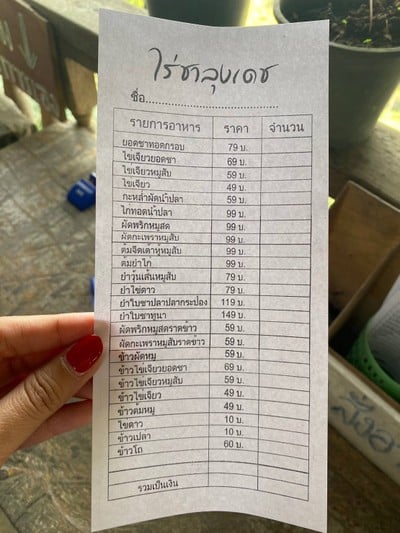 ไร่ชาลุงเดช
ชื่อ
รายการอาหาร ราคา จำนวน
ยอดชาทอดกรอบ 79 บ.
ไข่เจียวยอดชา 69 บ.
ไข่เจียวหมูสับ 59 บ.
ไข่เจียว 49 บ.
กะหล่ำผัดน้ำปลา 59 บ.
ไก่ทอดน้ำปลา 99 บ.
ผัดพริกหมูสด 99 บ.
ผัดกะเพราหมูสับ 99 บ.
ต้มจืดเต้าหู้หมูสับ 99 บ.
ต้มยำไก่ 99 บ.
ยำวุ้นเส้นหมูสับ 79 บ.
ยำไข่ดาว 79 บ.
ยำใบชาปลาปลากระป๋อง 119 บ.
ยำใบชาทูน่า 149 บ.
ผัดพริกหมูสดราดข้าว 59 บ.
ผัดกะเพราหมูสับราดข้าว 59 บ.
ข้าวผัดหมู 59 บ.
ข้าวไข่เจียวยอดชา 69 บ.
ข้าวไข่เจียวหมูสับ 59 บ.
ข้าวไข่เจียว 49 บ.
ข้าวต้มหมู 49 บ.
ไข่ดาว 10 บ.
ข้าวเปล่า 10 บ.
ข้าวโถ 60 บ.
รวมเป็นเงิน